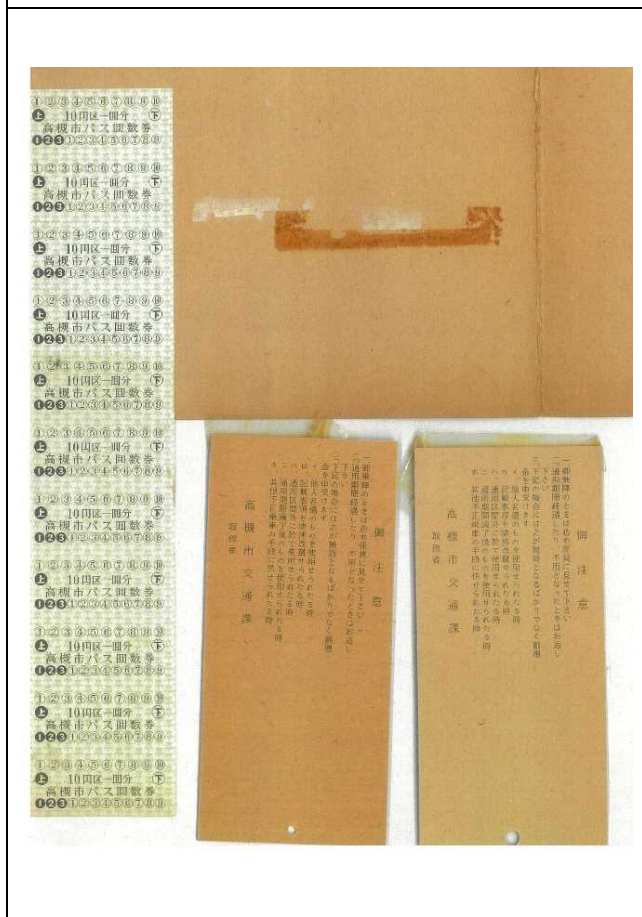 ①②③④⑤⑥⑦⑧⑨⑩
上 10円区一回分 下
高槻市バス回数券
❶❷❸①②③④⑤⑥⑦⑧⑨
①②③④⑤⑥⑦⑧⑨⑩
上 10円区一回分 下
高槻市バス回数券
❶❷❸①②③④⑤⑥⑦⑧⑨
①②③④⑤⑥⑦⑧⑨⑩
上 10円区一回分 下
高槻市バス回数券
❶❷❸①②③④⑤⑥⑦⑧⑨
①②③④⑤⑥⑦⑧⑨⑩
上 10円区一回分 下
高槻市バス回数券
❶❷❸①②③④⑤⑥⑦⑧⑨
①②③④⑤⑥⑦⑧⑨⑩
上 10円区一回分 下
高槻市バス回数券
❶❷❸①②③④⑤⑥⑦⑧⑨
①②③④⑤⑥⑦⑧⑨⑩
上 10円区一回分 下
高槻市バス回数券
❶❷❸①②③④⑤⑥⑦⑧⑨
①②③④⑤⑥⑦⑧⑨⑩
上 10円区一回分 下
高槻市バス回数券
❶❷❸①②③④⑤⑥⑦⑧⑨
①②③④⑤⑥⑦⑧⑨⑩
上 10円区一回分 下
高槻市バス回数券
❶❷❸①②③④⑤⑥⑦⑧⑨
①②③④⑤⑥⑦⑧⑨⑩
上 10円区一回分 下
高槻市バス回数券
❶❷❸①②③④⑤⑥⑦⑧⑨
①②③④⑤⑥⑦⑧⑨⑩
上 10円区一回分 下
高槻市バス回数券
❶❷❸①②③④⑤⑥⑦⑧⑨
①②③④⑤⑥⑦⑧⑨⑩
上 10円区一回分 下
高槻市バス回数券
❶❷❸①②③④⑤⑥⑦⑧⑨
御注意
一、御乗降のときは必ず係員に見せて下さい
二、通用期間経過したり、不用となったときはお返し
下さい
三、下記の場合には之が無効となるばかりでなく割増
金を申受けます
イ 他人名儀のものを使用せられたる時
ロ 記載事項を塗抹改竄せられたる時
ハ 通用区間外に於て使用せられたる時
ニ 通用期間満了後のものを使用せられたる時
ホ 其他不正乗車の手段に供せられたる時
高槻市交通課
取扱者
御注意
一、御乗降のときは必ず係員に見せて下さい
二、通用期間経過したり、不用となったときはお返し
下さい
三、下記の場合には之が無効となるばかりでなく割増
金を申受けます
イ 他人名儀のものを使用せられたる時
ロ 記載事項を塗抹改竄せられたる時
ハ 通用区間外に於て使用せられたる時
ニ 通用期間満了後のものを使用せられたる時
ホ 其他不正乗車の手段に供せられたる時
高槻市交通課
取扱者